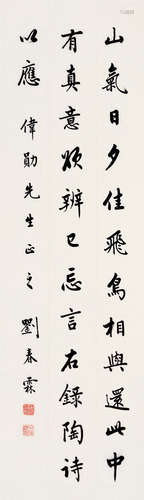 山氣日夕佳飛鳥相與還此中
有真意欲辨已忘言右錄陶詩
以應 偉勛先生正之 劉春霖